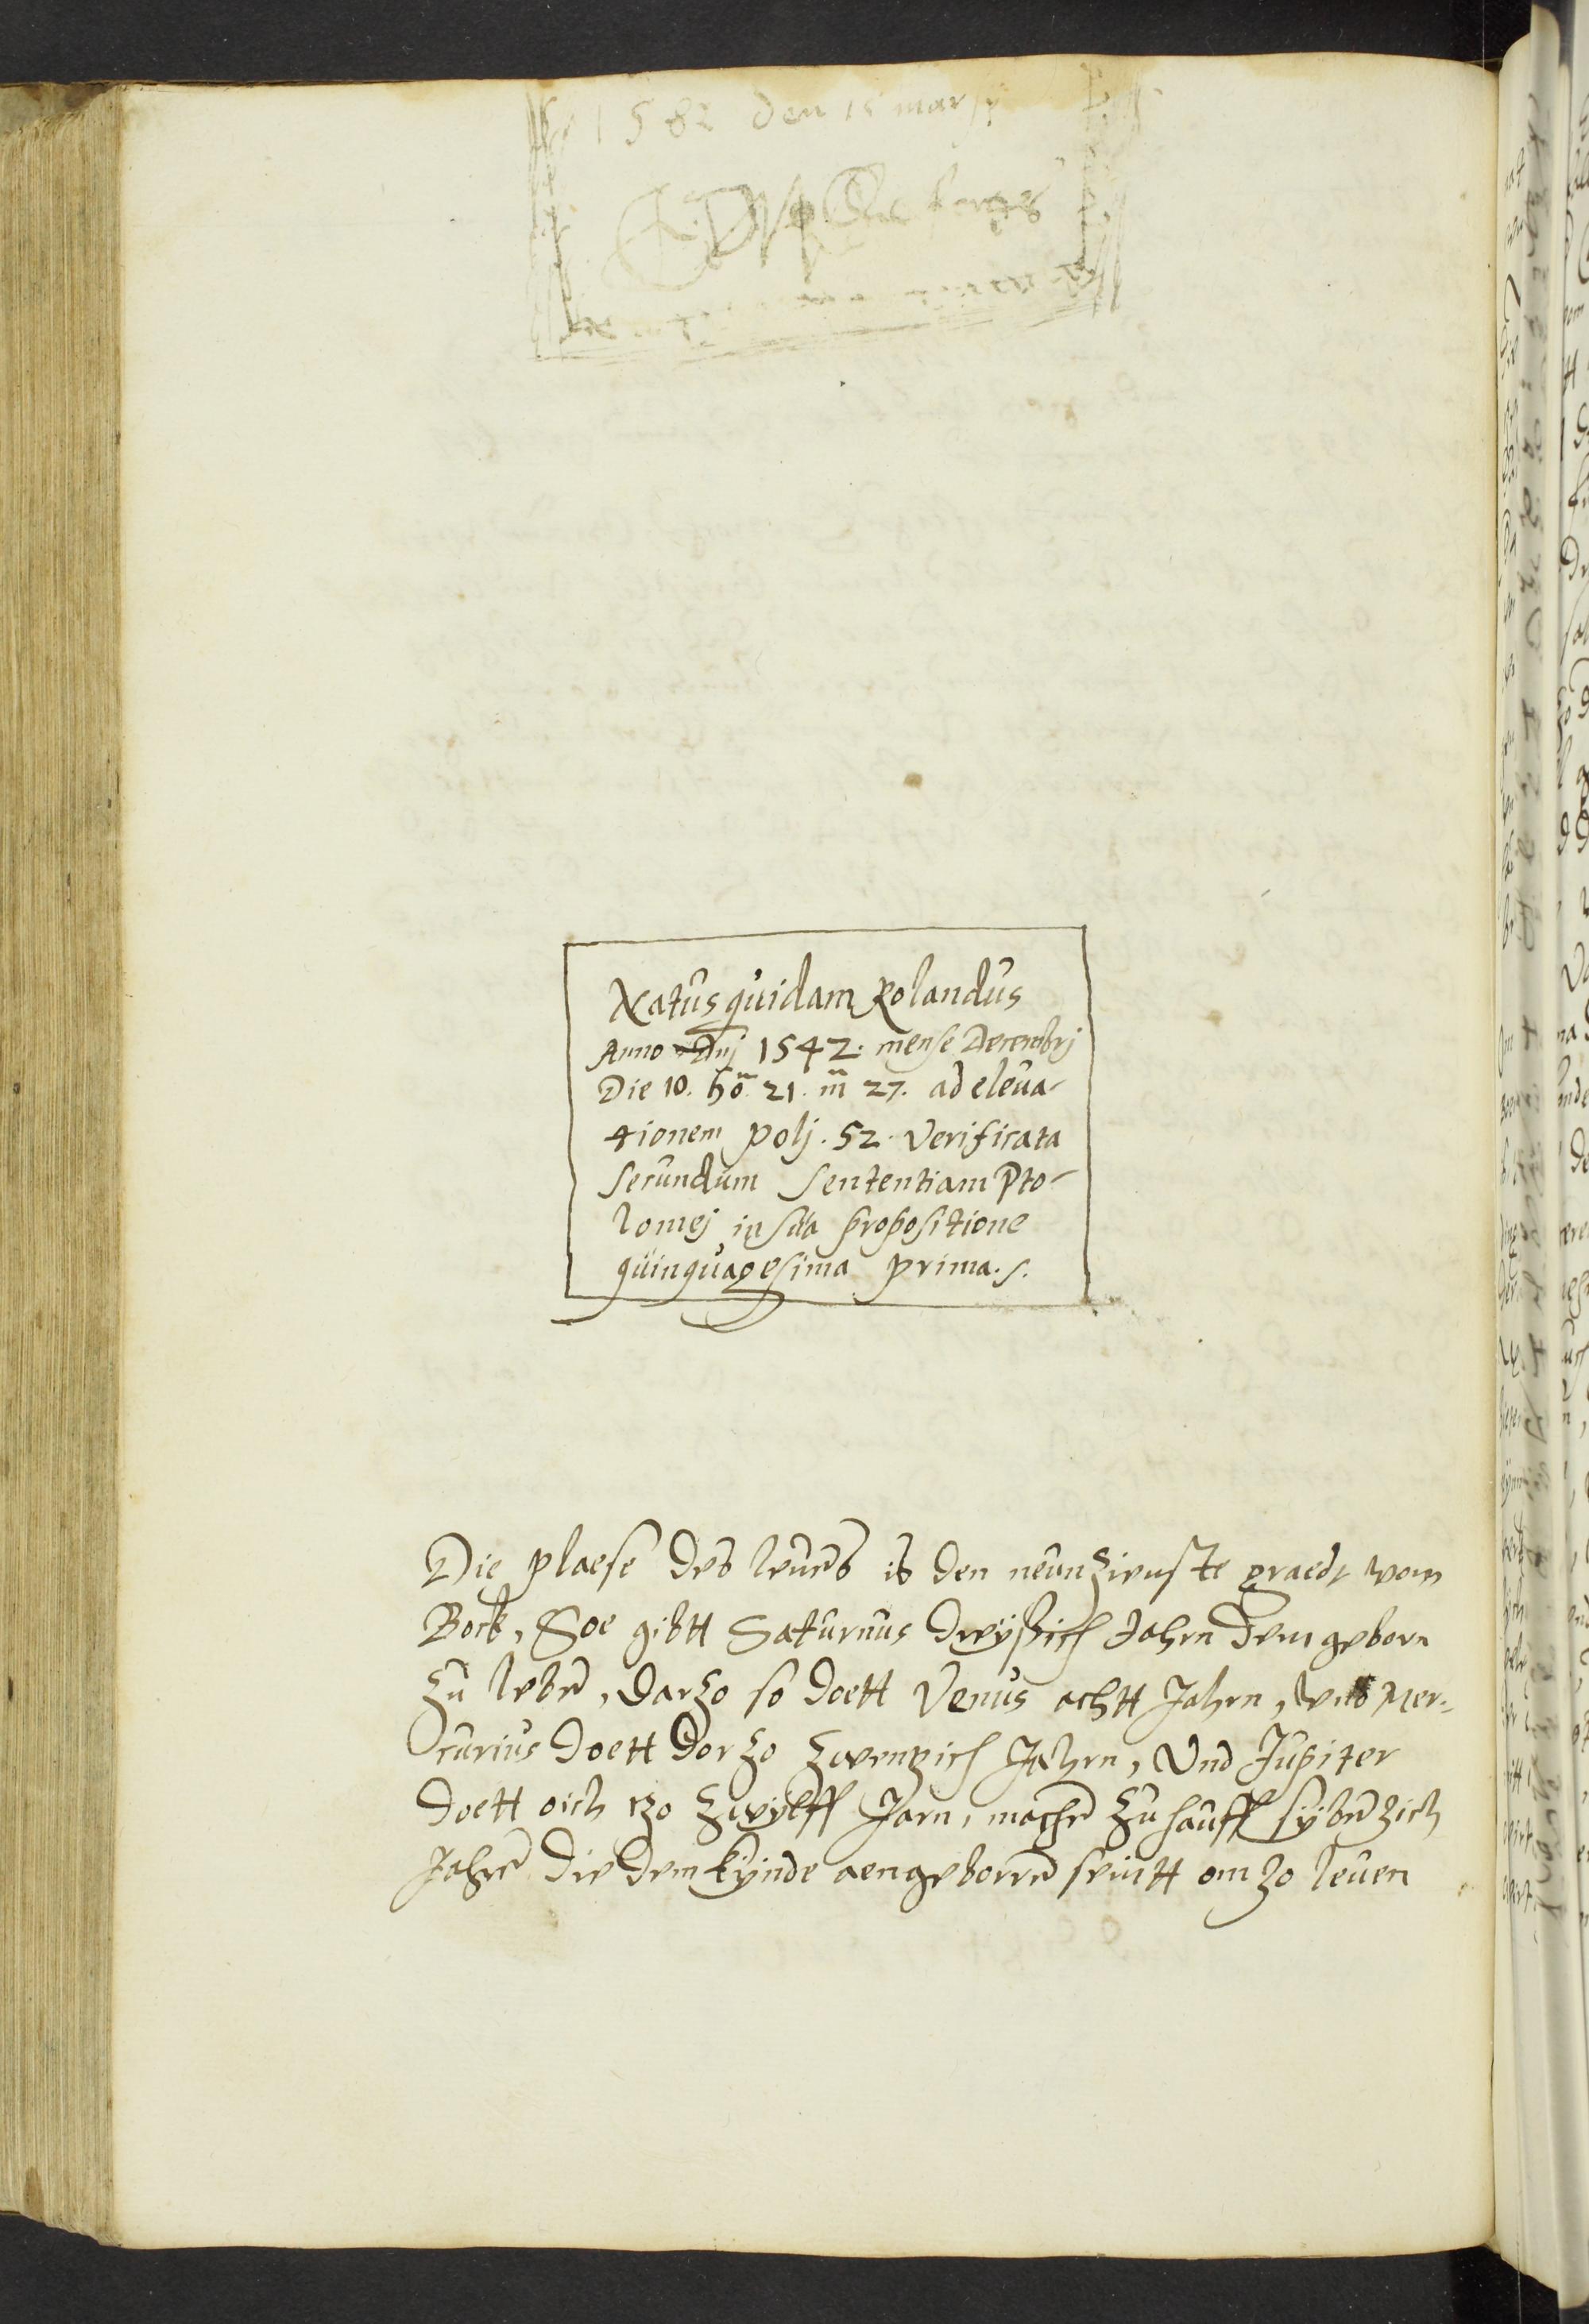 1582 den 15 martij
Natus quidam Rolandus
Anno Dnj 1542. mense Decembrj
Die 10. ho 21. m 27. ad eleua-
tionem polj. 52. Verificata
Secundum Sententiam Pto-
lomej in sua propositione
quinquagesima prima. s.
Die plaese des leuens is den neunzienste graedt vom
Bock, Soe gibtt Saturnus dreyßich Jahrn dem geborn
zu leben, darzo so doett Venus achtt Jahrn, vnd Mer-
curius doett dorzo zwentzich Jahrn, Vnd Jupiter
doett oich tzo zwylff Jarn, machen zu hauff sybenzich
Jahren die dem kynde aengeborren seintt om zo leuen